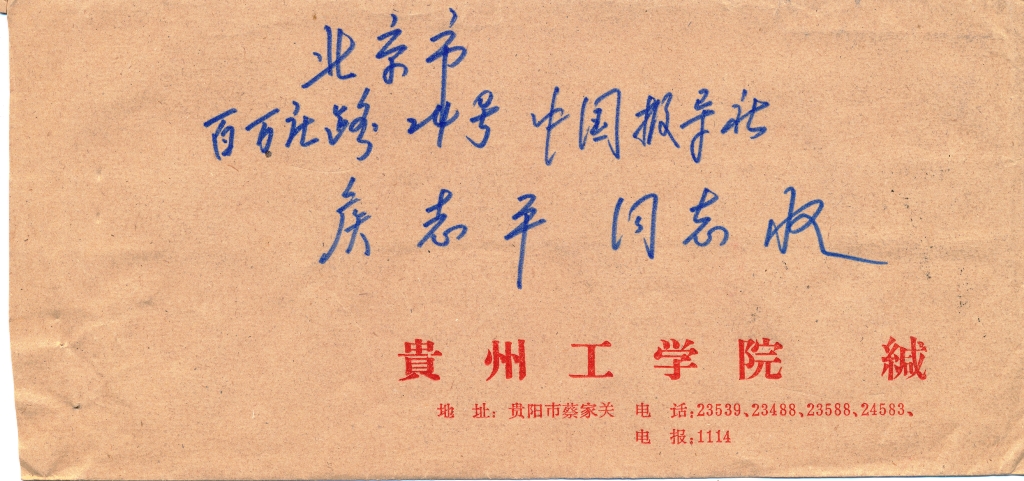 北京市
百万庄路 24号 中国报导社
侯志平 同志收
貴州工学院 緘
地 址：贵阳市蔡家关 电 话：23539、23488、23588、24583、
电 报：1114